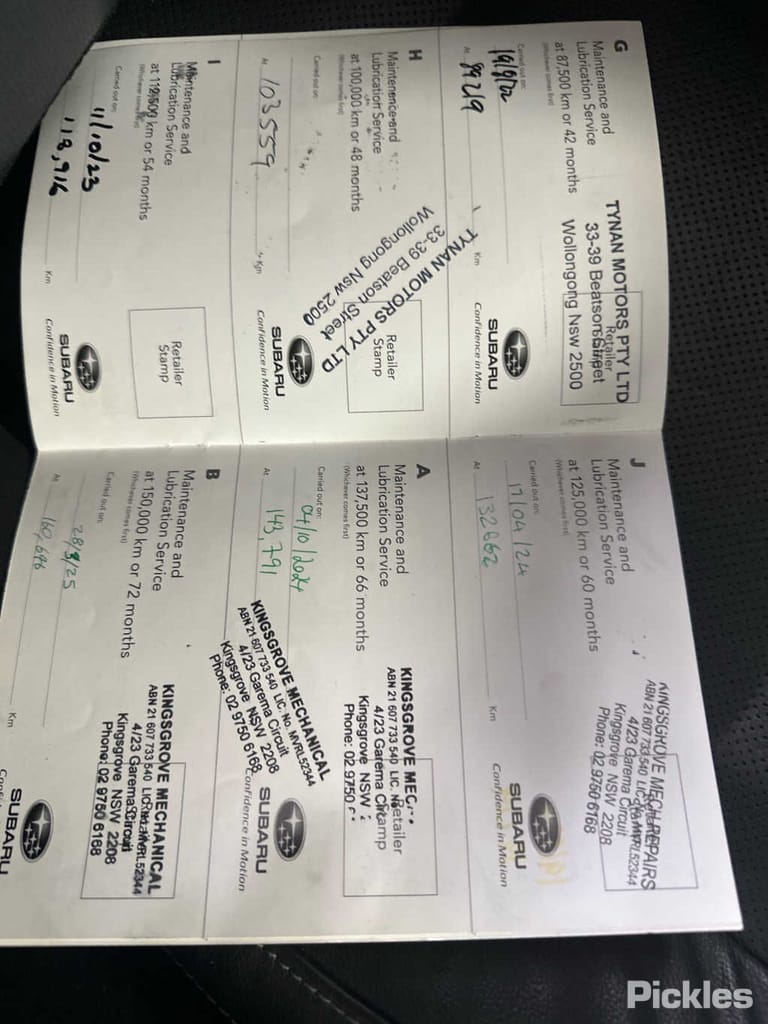 G
Maintenance and
Lubrication Service
at 87,500 km or 42 months
(Whichever comes first)
Carried out on:
At
89219
Km
TYNAN MOTORS PTY LTD
33-39 Beatson Street
Wollongong Nsw 2500
Retailer
SUBARU
Confidence in Motion
H
Maintenance and
Lubrication Service
at 100,000 km or 48 months
(Whichever comes first)
Carried out on:
At
103559
Km
TYNAN MOTORS PTY LTD
33-39 Beatson Street
Wollongong Nsw 2500
Retailer
Stamp
SUBARU
Confidence in Motion
I
Maintenance and
Lubrication Service
at 112,500 km or 54 months
(Whichever comes first)
Carried out on:
11/10/23
118,916
Km
Retailer
Stamp
SUBARU
Confidence in Motion
J
Maintenance and
Lubrication Service
at 125,000 km or 60 months
(Whichever comes first)
Carried out on:
17/04/24
At
132662
Km
KINGSGROVE MECH REPAIRS
ABN 21 607 733 540 LIC. No. MVRL52344
4/23 Garema Circuit
Kingsgrove NSW 2208
Phone: 02 9750 6168
SUBARU
Confidence in Motion
A
Maintenance and
Lubrication Service
at 137,500 km or 66 months
(Whichever comes first)
Carried out on:
04/10/2024
At
143,791
KINGSGROVE MEC
ABN 21 607 733 540 LIC. No
4/23 Garema Circ
Kingsgrove NSW
Phone: 02 9750
Retailer
Stamp
KINGSGROVE MECHANICAL
ABN 21 607 733 540 LIC. No. MVRL52344
4/23 Garema Circuit
Kingsgrove NSW 2208
Phone: 02 9750 6168
SUBARU
Confidence in Motion
B
Maintenance and
Lubrication Service
at 150,000 km or 72 months
(Whichever comes first)
Carried out on:
At
160,696
Km
KINGSGROVE MECHANICAL
ABN 21 607 733 540 LIC. No. MVRL52344
4/23 Garema Circuit
Kingsgrove NSW 2208
Phone: 02 9750 6168
SUBARU
Pickles